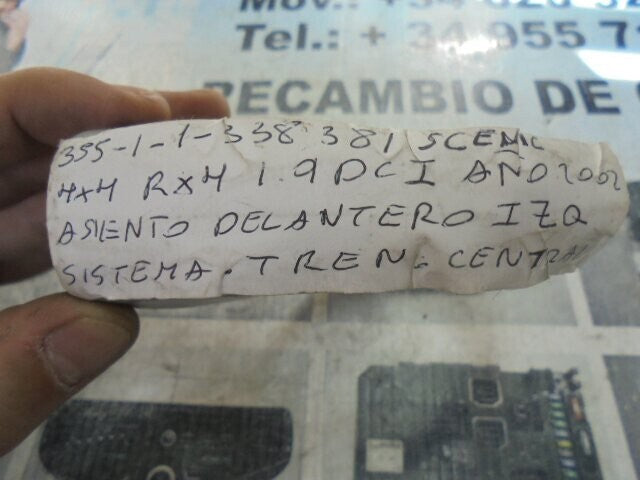 Tel.: + 34 955 7
RECAMBIO DE
355-1-1-338 381 SCENIC
4x4 RX4 1.9 DCI AÑO 2002
ASIENTO DELANTERO IZQ
SISTEMA. TREN. CENTRAL